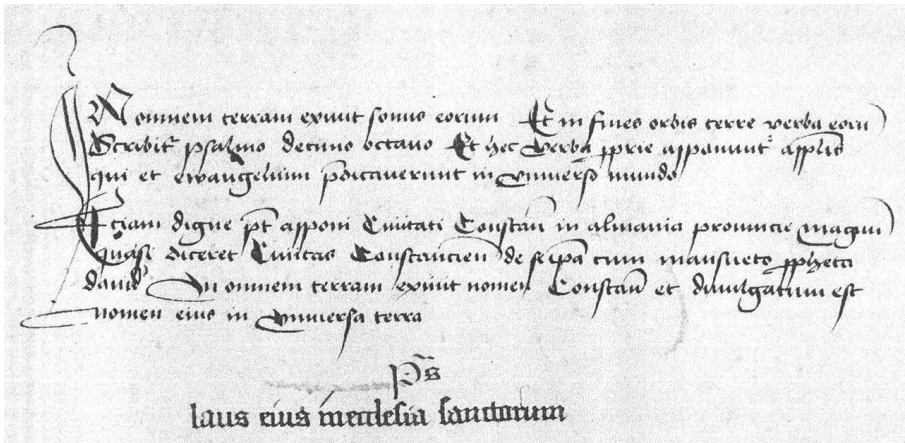 In omnem terram exivit sonus eorum Et in fines orbis terre verba eoru
Scribit psalmo decimo octavo Et hec verba pprie apponunt applis
qui et ewangelium pdicaverunt in universo mundo
Etiam digne pt apponi Civitati Constan in almania provincie magun
Quasi diceret Civitas Constancien de se ipa cum mansueto ppheta
david In omnem terram exivit nomen Constan et divulgatum est
nomen eius in universa terra
Ps
laus eius in ecclesia sanctorum